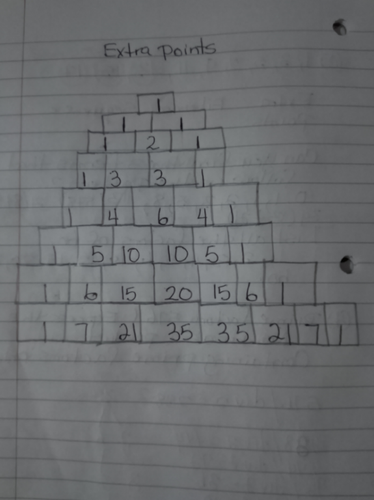 Extra points
1
1 1
1 2 1
1 3 3 1
1 4 6 4 1
1 5 10 10 5 1
1 6 15 20 15 6 1
1 7 21 35 35 21 7 1